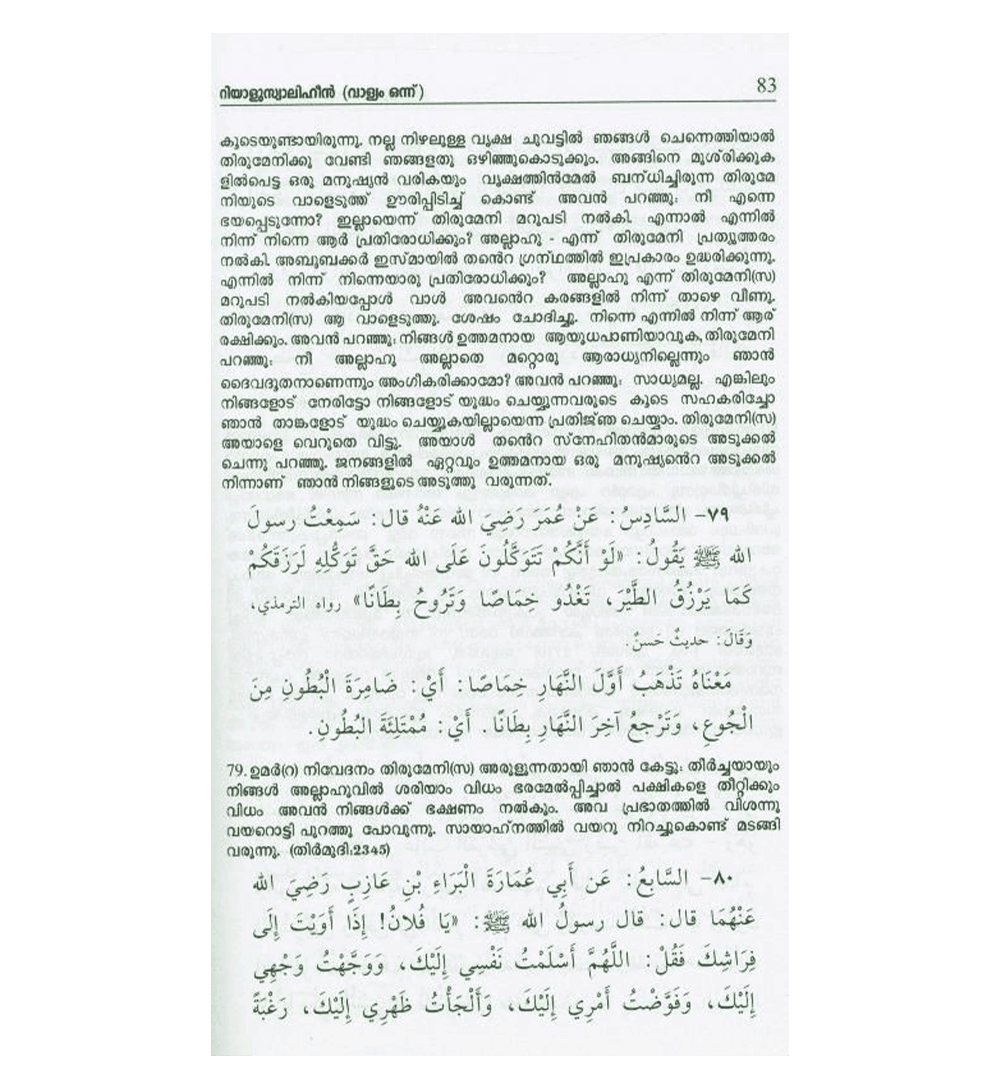 റിയാളുസ്വാലിഹീൻ (വാള്യം ഒന്ന്) 83
കൂടെയുണ്ടായിരുന്നു. നല്ല നിഴലുള്ള വൃക്ഷ ചുവട്ടിൽ ഞങ്ങൾ ചെന്നെത്തിയാൽ
തിരുമേനിക്കു വേണ്ടി ഞങ്ങളതു ഒഴിഞ്ഞുകൊടുക്കും. അങ്ങിനെ മുശ്‌രിക്കുക
ളിൽപെട്ട ഒരു മനുഷ്യൻ വരികയും വൃക്ഷത്തിൻമേൽ ബന്ധിച്ചിരുന്ന തിരുമേ
നിയുടെ വാളെടുത്ത് ഊരിപ്പിടിച്ച് കൊണ്ട് അവൻ പറഞ്ഞു: നീ എന്നെ
ഭയപ്പെടുന്നോ? ഇല്ലായെന്ന് തിരുമേനി മറുപടി നൽകി. എന്നാൽ എന്നിൽ
നിന്ന് നിന്നെ ആർ പ്രതിരോധിക്കും? അല്ലാഹു - എന്ന് തിരുമേനി പ്രത്യുത്തരം
നൽകി. അബൂബക്കർ ഇസ്മായിൽ തൻെറ ഗ്രന്ഥത്തിൽ ഇപ്രകാരം ഉദ്ധരിക്കുന്നു.
എന്നിൽ നിന്ന് നിന്നെയാരു പ്രതിരോധിക്കും? അല്ലാഹു എന്ന് തിരുമേനി(സ)
മറുപടി നൽകിയപ്പോൾ വാൾ അവൻെറ കരങ്ങളിൽ നിന്ന് താഴെ വീണു.
തിരുമേനി(സ) ആ വാളെടുത്തു. ശേഷം ചോദിച്ചു. നിന്നെ എന്നിൽ നിന്ന് ആര്
രക്ഷിക്കും. അവൻ പറഞ്ഞു: നിങ്ങൾ ഉത്തമനായ ആയുധപാണിയാവുക, തിരുമേനി
പറഞ്ഞു: നീ അല്ലാഹു അല്ലാതെ മറ്റൊരു ആരാധ്യനില്ലെന്നും ഞാൻ
ദൈവദൂതനാണെന്നും അംഗീകരിക്കാമോ? അവൻ പറഞ്ഞു: സാധ്യമല്ല. എങ്കിലും
നിങ്ങളോട് നേരിട്ടോ നിങ്ങളോട് യുദ്ധം ചെയ്യുന്നവരുടെ കൂടെ സഹകരിച്ചോ
ഞാൻ താങ്കളോട് യുദ്ധം ചെയ്യുകയില്ലായെന്ന പ്രതിജ്ഞ ചെയ്യാം. തിരുമേനി(സ)
അയാളെ വെറുതെ വിട്ടു. അയാൾ തൻെറ സ്നേഹിതൻമാരുടെ അടുക്കൽ
ചെന്നു പറഞ്ഞു. ജനങ്ങളിൽ ഏറ്റവും ഉത്തമനായ ഒരു മനുഷ്യൻെറ അടുക്കൽ
നിന്നാണ് ഞാൻ നിങ്ങളുടെ അടുത്തു വരുന്നത്.
٧٩- السَّادِسُ: عَنْ عُمَرَ رَضِيَ الله عَنْهُ قال: سَمِعْتُ رسولَ
الله ﷺ يَقُولُ: «لَوْ أَنَّكُمْ تَتَوَكَّلُونَ عَلَى الله حَقَّ تَوَكُّلِهِ لَرَزَقَكُمْ
كَمَا يَرْزُقُ الطَّيْرَ، تَغْدُو خِمَاصًا وَتَرُوحُ بِطَانًا» رواه الترمذي،
وَقَالَ: حديثٌ حَسنٌ.
مَعْنَاهُ تَذْهَبُ أَوَّلَ النَّهَارِ خِمَاصًا: أَيْ: ضَامِرَةَ الْبُطُونِ مِنَ
الْجُوعِ، وَتَرْجعُ آخِرَ النَّهَارِ بِطَانًا. أَيْ: مُمْتَلِئَةَ البُطُونِ.
79. ഉമർ(റ) നിവേദനം തിരുമേനി(സ) അരുളുന്നതായി ഞാൻ കേട്ടു: തിർച്ചയായും
നിങ്ങൾ അല്ലാഹുവിൽ ശരിയാം വിധം ഭരമേൽപ്പിച്ചാൽ പക്ഷികളെ തീറ്റിക്കും
വിധം അവൻ നിങ്ങൾക്ക് ഭക്ഷണം നൽകും. അവ പ്രഭാതത്തിൽ വിശന്നു
വയറൊട്ടി പുറത്തു പോവുന്നു. സായാഹ്നത്തിൽ വയറു നിറച്ചുകൊണ്ട് മടങ്ങി
വരുന്നു. (തിർമുദി:2345)
٨٠- السَّابِعُ: عَن أَبِي عُمَارَةَ الْبَرَاءِ بْنِ عَازِبٍ رَضِيَ الله
عَنْهُمَا قال: قال رسولُ الله ﷺ: «يَا فُلَانُ! إِذَا أَوَيْتَ إِلَى
فِرَاشِكَ فَقُلْ: اللَّهُمَّ أَسْلَمْتُ نَفْسِي إِلَيْكَ، وَوَجَّهْتُ وَجْهِي
إِلَيْكَ، وَفَوَّضْتُ أَمْرِي إِلَيْكَ، وَأَلْجَأْتُ ظَهْرِي إِلَيْكَ، رَغْبَةً